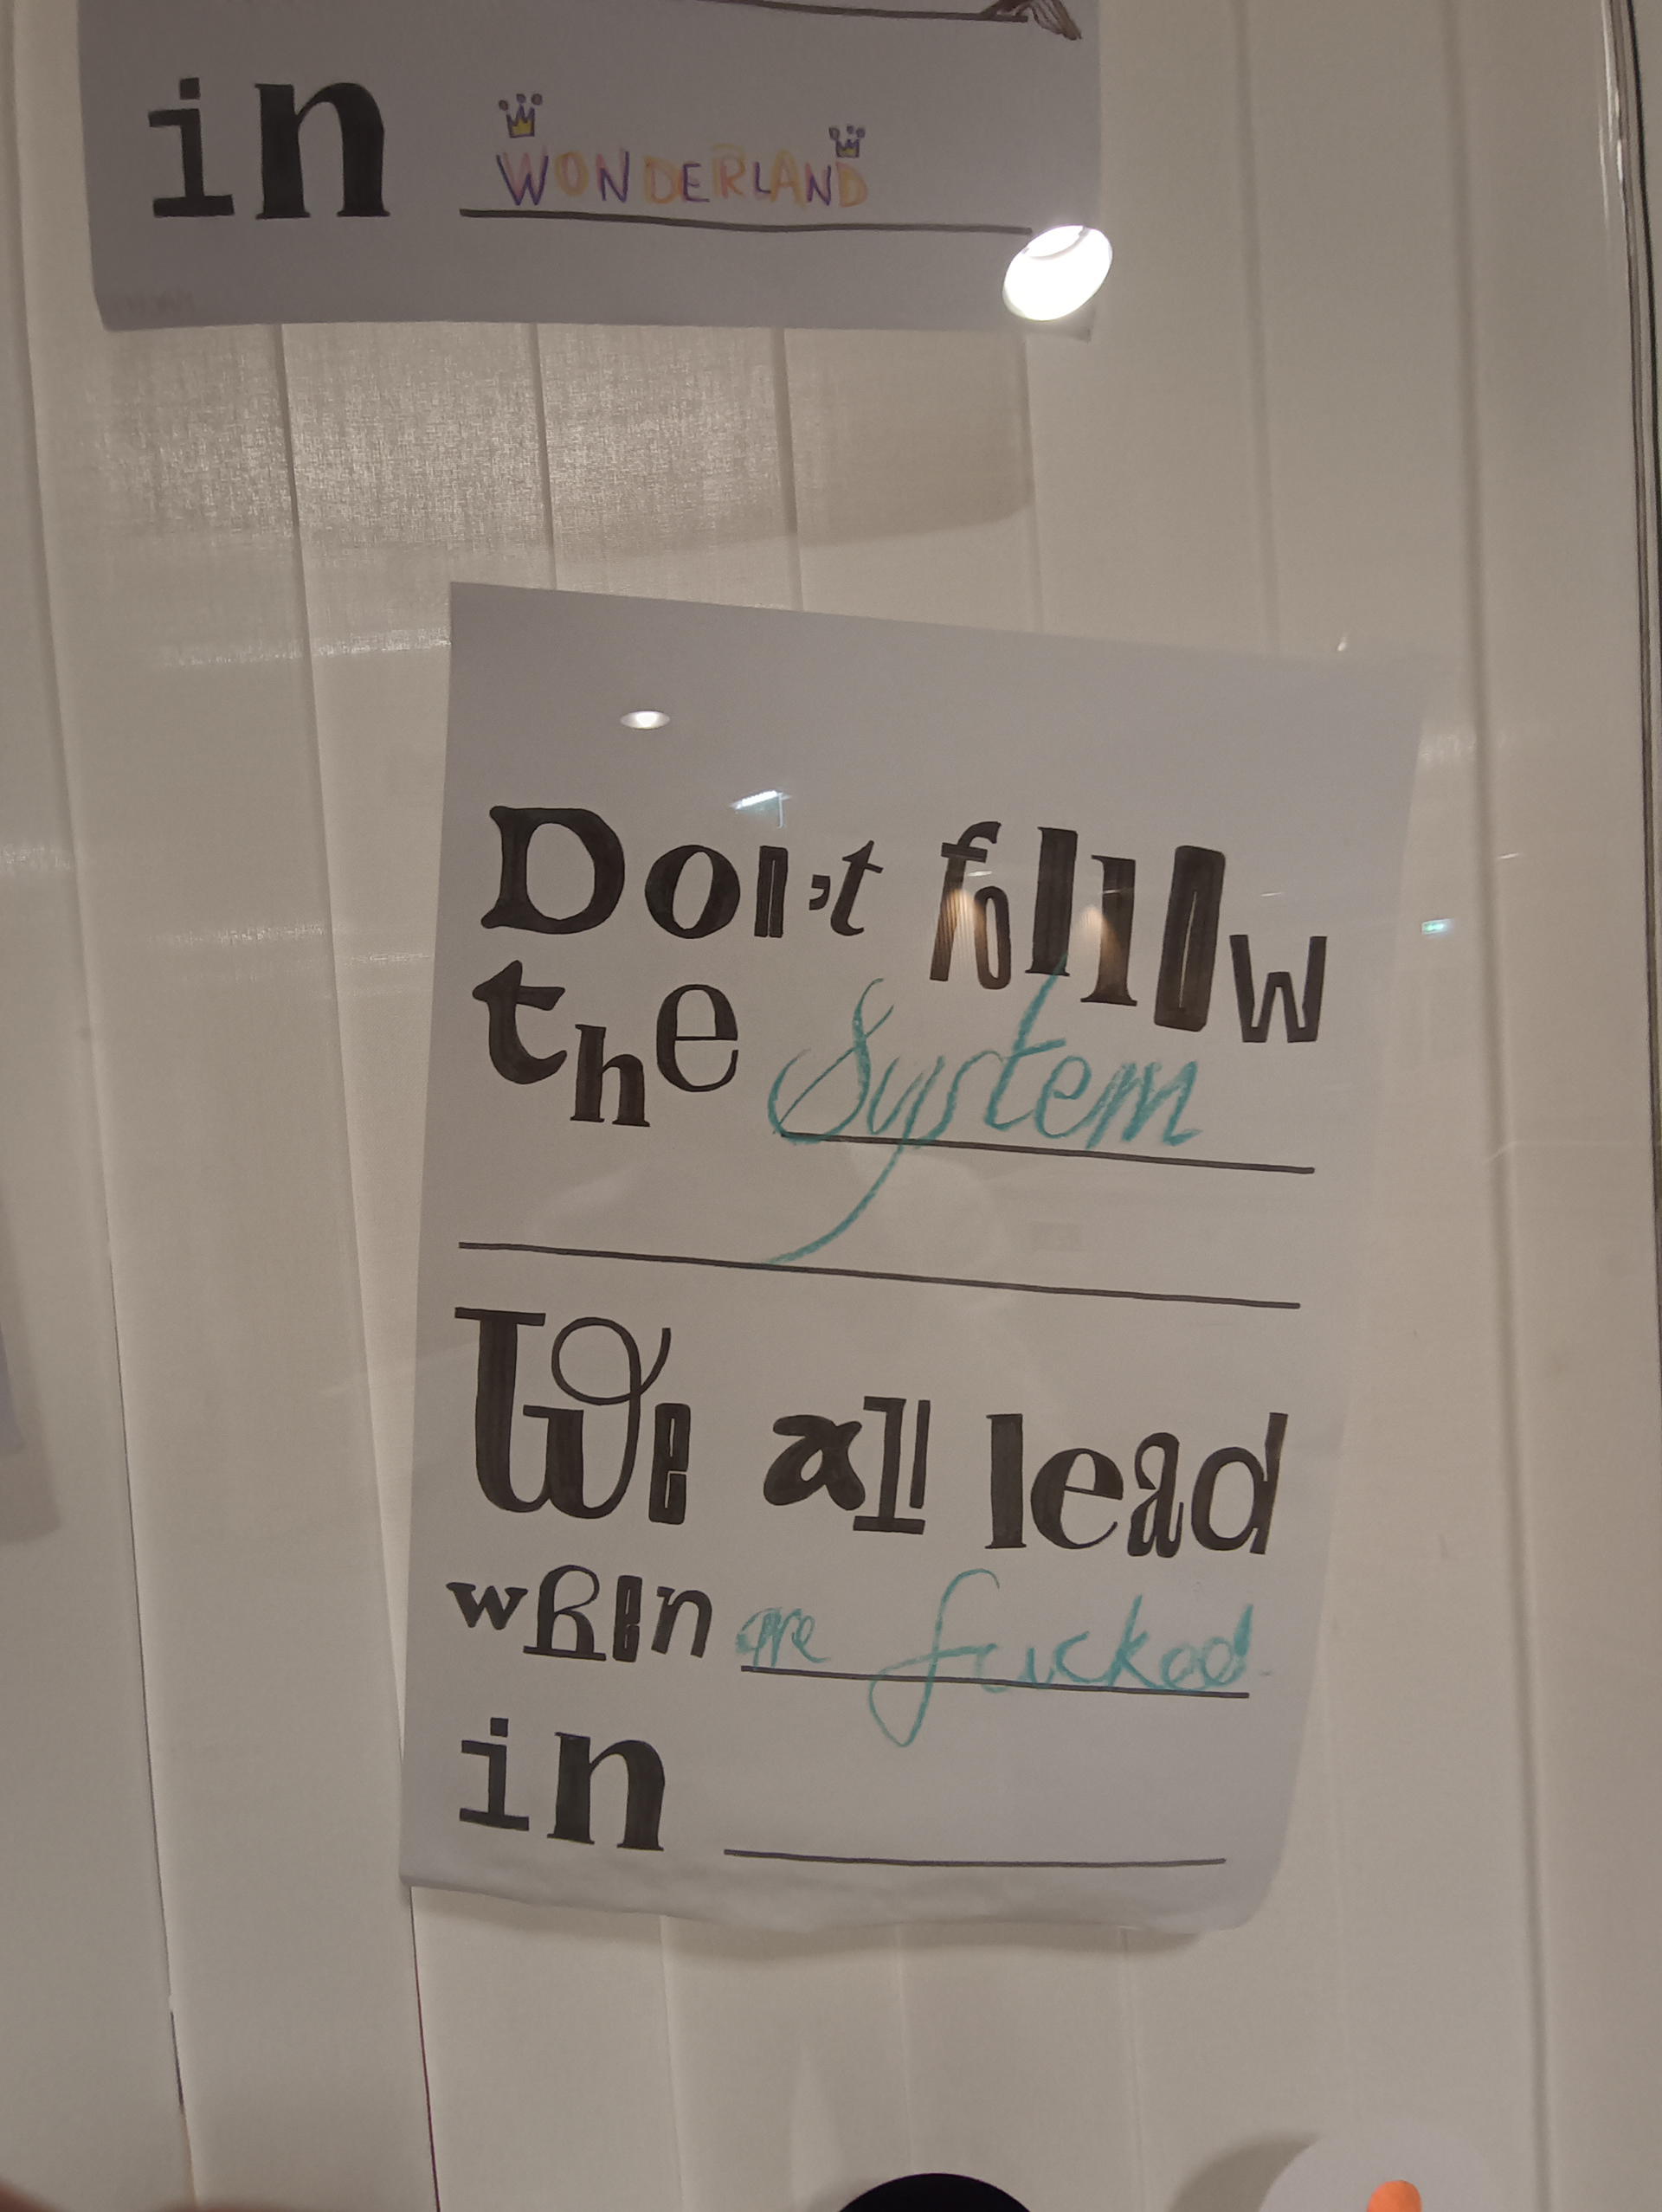 in WONDERLAND
Don't follow
the System
We all lead
when are fucked
in